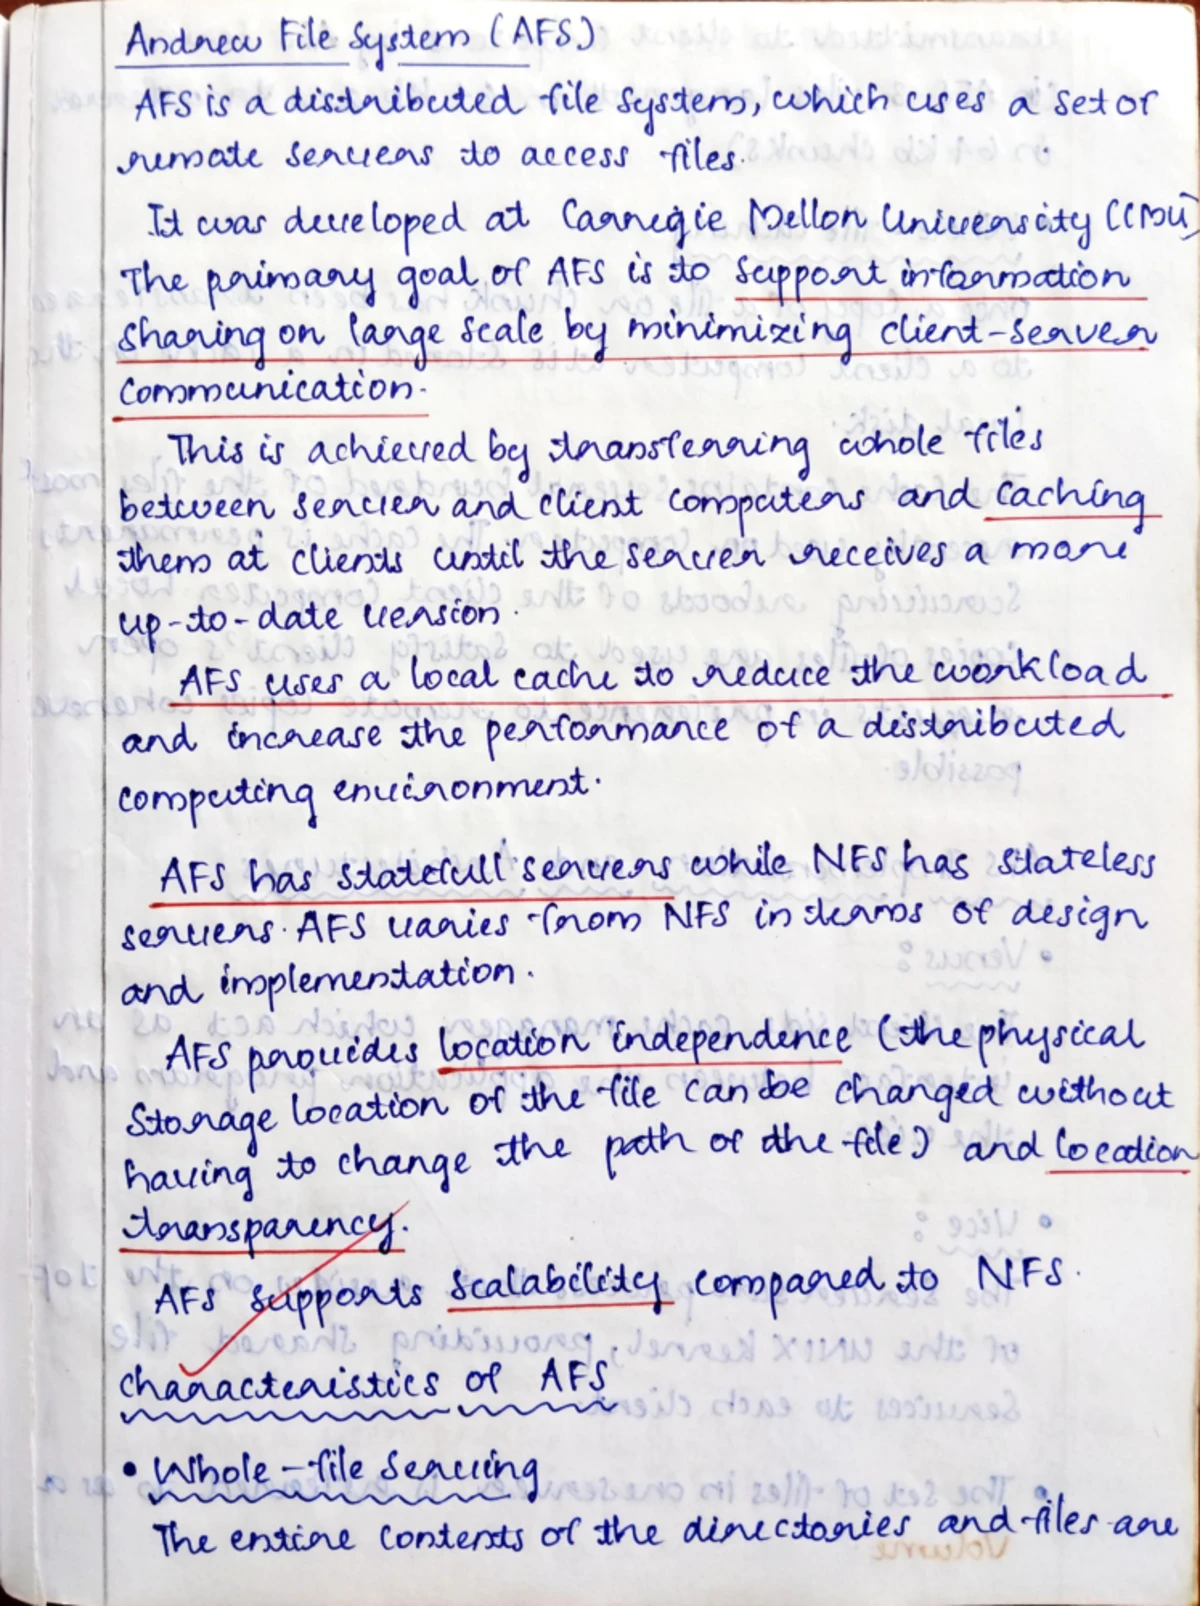 Andrew File System (AFS)
AFS is a distributed file system, which uses a set of
remote servers to access files.
It was developed at Carnegie Mellon University (CMU)
The primary goal of AFS is to support information
sharing on large scale by minimizing client-server
communication.
This is achieved by transferring whole files
between server and client computers and caching
them at clients until the server receives a more
up-to-date version.
AFS uses a local cache to reduce the workload
and increase the performance of a distributed
computing environment.
AFS has statefull servers while NFS has stateless
servers. AFS varies from NFS in terms of design
and implementation.
AFS provides location independence (the physical
Storage location of the file can be changed without
having to change the path of the file) and location
transparency.
AFS supports scalability compared to NFS.
characteristics of AFS
• Whole-file Serving
The entire contents of the directories and files are